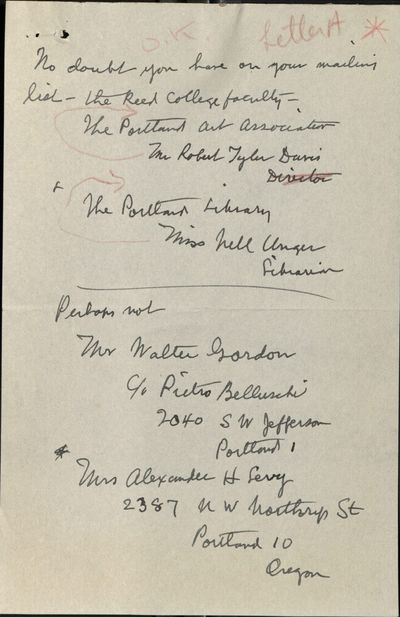 O.K Letter A *
No doubt you have on your mailing
list - the Reed College faculty -
The Portland Art Association
Mr Robert Tyler Davis
Director
+
The Portland Library
Miss Nell Unger
Librarian
Perhaps not
Mr Walter Gordon
c/o Pietro Belluschi
2040 S W Jefferson
Portland 1
* Mrs Alexander H Levy
2387 N W Northrup St
Portland 10
Oregon